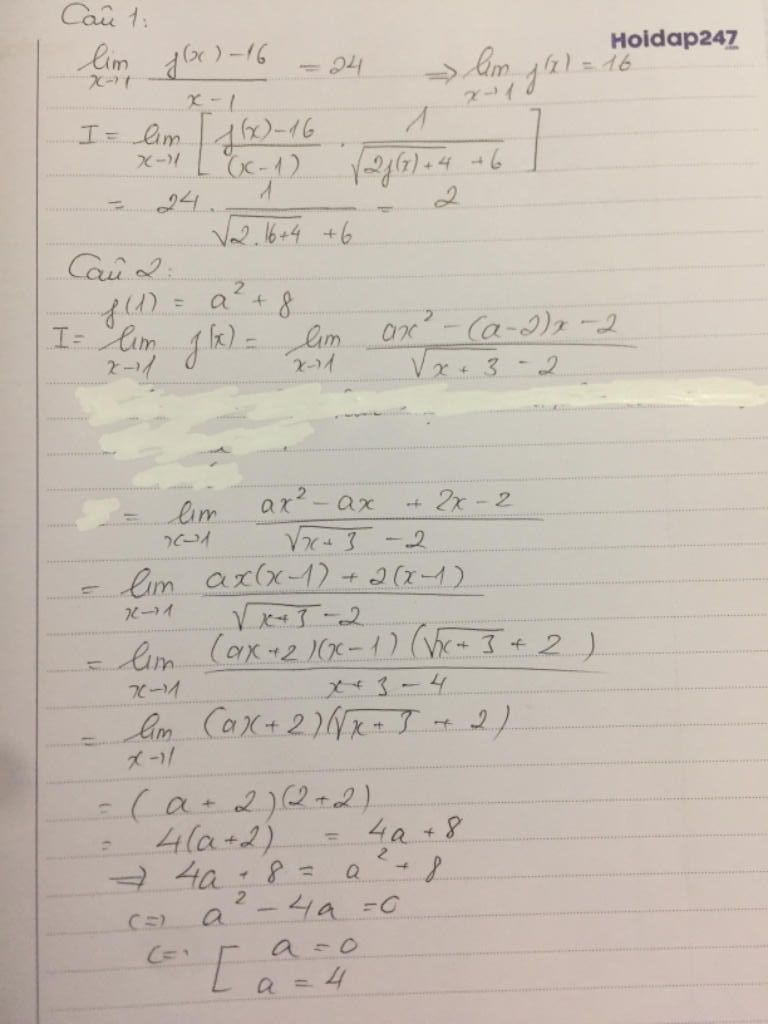 Câu 1:
Hoidap247
lim x→1 (f(x) - 16)/(x - 1) = 24 ⇒ lim x→1 f(x) = 16
I = lim x→1 [ (f(x) - 16)/((x - 1)) . 1/(√(2f(x) + 4) + 6) ]
= 24 . 1/(√(2.16+4) + 6) = 2
Câu 2:
f(1) = a² + 8
I = lim x→1 f(x) = lim x→1 (ax² - (a-2)x - 2)/(√(x+3) - 2)
= lim x→1 (ax² - ax + 2x - 2)/(√(x+3) - 2)
= lim x→1 (ax(x-1) + 2(x-1))/(√(x+3) - 2)
= lim x→1 ((ax+2)(x-1)(√(x+3) + 2))/(x + 3 - 4)
= lim x→1 (ax+2)(√(x+3) + 2)
= (a + 2)(2+2)
= 4(a+2) = 4a + 8
⇒ 4a + 8 = a² + 8
<=> a² - 4a = 0
<=> [ a = 0
a = 4